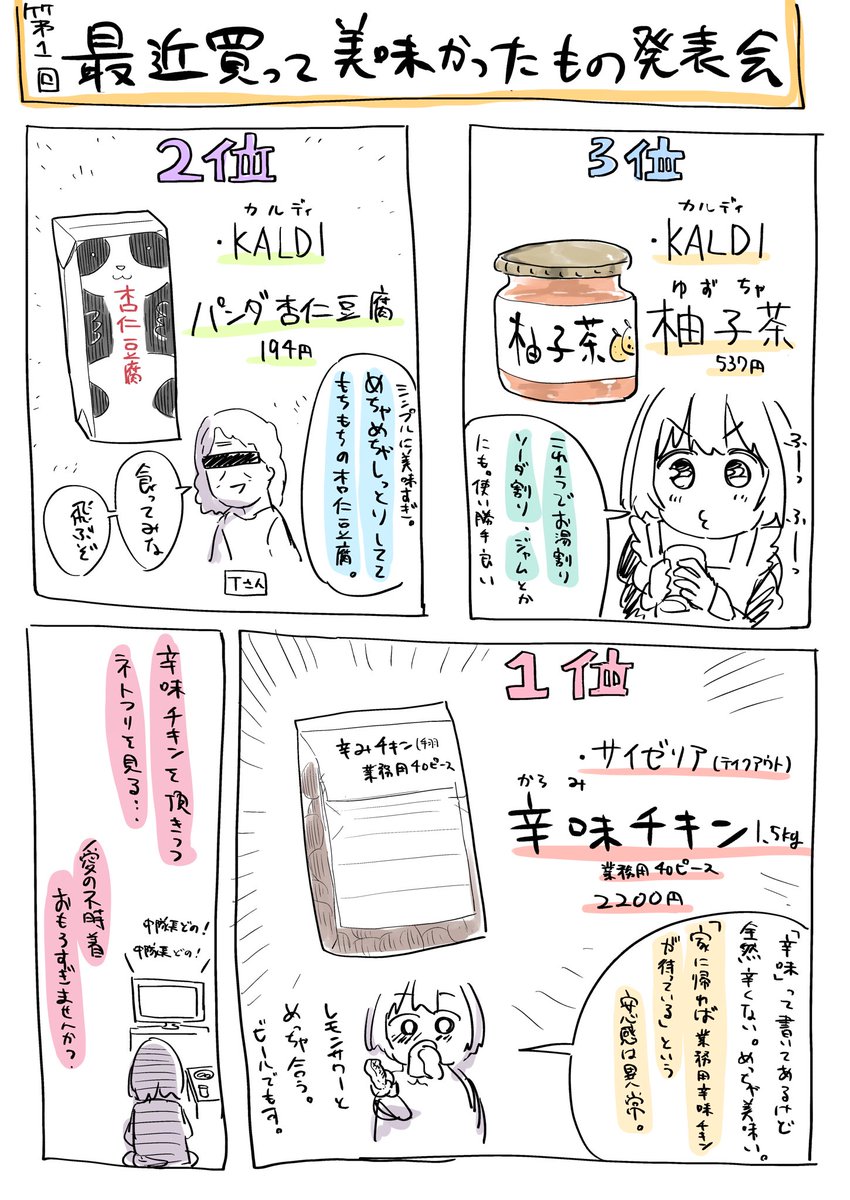 第1回
最近買って美味かったもの発表会
3位
カルディ
・KALDI
ゆずちゃ
柚子茶
537円
柚子茶
ふーっ
ふーっ
これ1つでお湯割り
ソーダ割り、ジャムとか
にも。使い勝手良い
2位
カルディ
・KALDI
パンダ杏仁豆腐
194円
杏仁豆腐
シンプルに美味すぎ。
めちゃめちゃしっとりしてて
もちもちの杏仁豆腐。
食ってみな
飛ぶぞ
Tさん
1位
・サイゼリア(テイクアウト)
からみ
辛味チキン1.5kg
業務用40ピース
2200円
辛みチキン(手羽
業務用40ピース
「辛味」って書いてあるけど
全然辛くない。めっちゃ美味い。
「家に帰れば業務用辛味チキン
が待っている」という
安心感は異常。
レモンサワーと
めっちゃ合う。
ビールでも可。
辛味チキンを頂きつつ
ネトフリを見る…
愛の不時着
おもろすぎませんか?
中隊長どの!
中隊長どの!